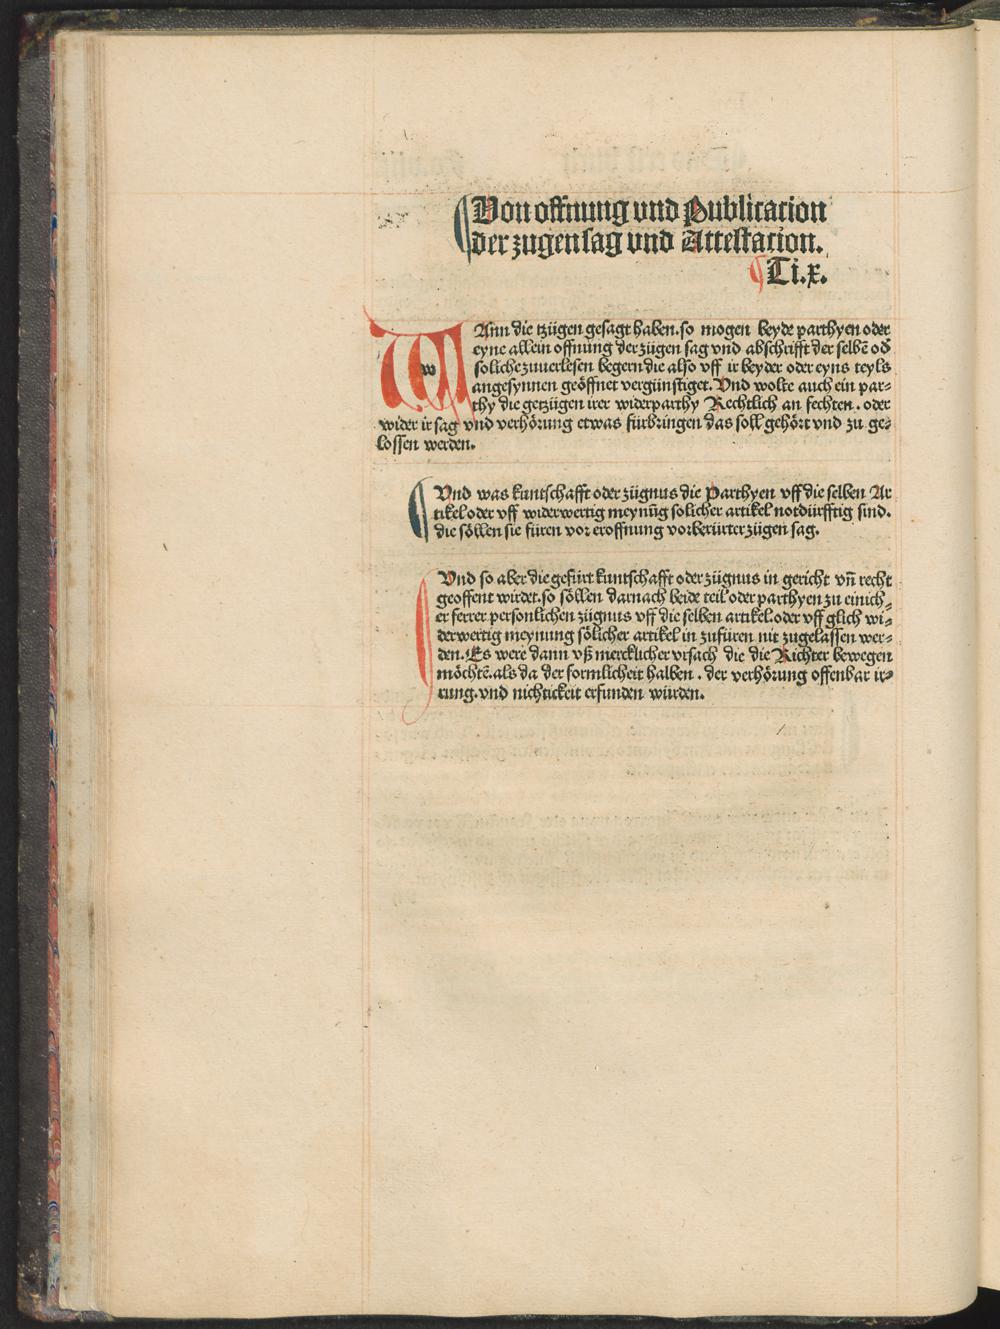 Von offnung vnd Publicacion
der zugen sag vnd Attestacion.
Ti.x.
WAnn die tzügen gesagt haben. so mogen beyde parthyen oder
eyne allein offnung der zügen sag vnd abschrifft der selbē od
soliche zuuerlesen begern die also vff ir beyder oder eyns teyls
angesynnen geöffnet vergünstiget. Vnd wolte auch ein par⸗
thy die getzügen irer widerparthy Rechtlich an fechten. oder
wider ir sag vnd verhörung etwas fürbringen das soll gehört vnd zu ge⸗
lossen werden.
Vnd was kuntschafft oder zügnus die Parthyen vff die selben Ar
tikel oder vff widerwertig meynūg solicher artikel notdürfftig sind.
die söllen sie füren vor eroffnung vorberürter zügen sag.
Vnd so aber die gefürt kuntschafft oder zügnus in gericht vn̄ recht
geoffent wirdet. so söllen darnach beide teil oder parthyen zu einich⸗
er ferrer personlichen zügnus vff die selben artikel. oder vff glich wi⸗
derwertig meynung sölicher artikel in zufüren nit zugelassen wer⸗
den. Es were dann vß mercklicher vrsach die die Richter bewegen
möchtē. als da der formlicheit halben. der verhörung offenbar ir⸗
rung. vnd nichtickeit erfunden würden.